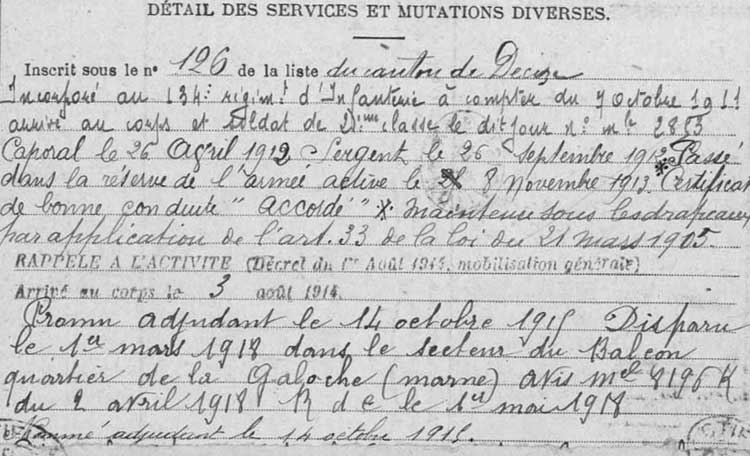 DÉTAIL DES SERVICES ET MUTATIONS DIVERSES.
Inscrit sous le nº 126 de la liste du canton de Decize
Incorporé au 134e régimt d'Infanterie à compter du 7 Octobre 1911
arrivé au corps et soldat de 2ème classe le dit jour nº mle 2853
Caporal le 26 Avril 1912 Sergent le 26 Septembre 1912 * Passé
dans la réserve de l'armée active le 8 Novembre 1913. Certificat
de bonne conduite " accordé " * Maintenu sous les drapeaux
par application de l'art. 33 de la loi du 21 mars 1905.
RAPPELÉ A L'ACTIVITÉ (Décret du 1er Août 1914, mobilisation générale)
Arrivé au corps le 3 août 1914.
Promu adjudant le 14 octobre 1915 Disparu
le 1er mars 1918 dans le secteur du Balcon
quartier de la Galoche (marne) avis mel 8196 K
du 2 avril 1918 R d c le 1er mai 1918
Nommé adjudant le 14 octobre 1915.